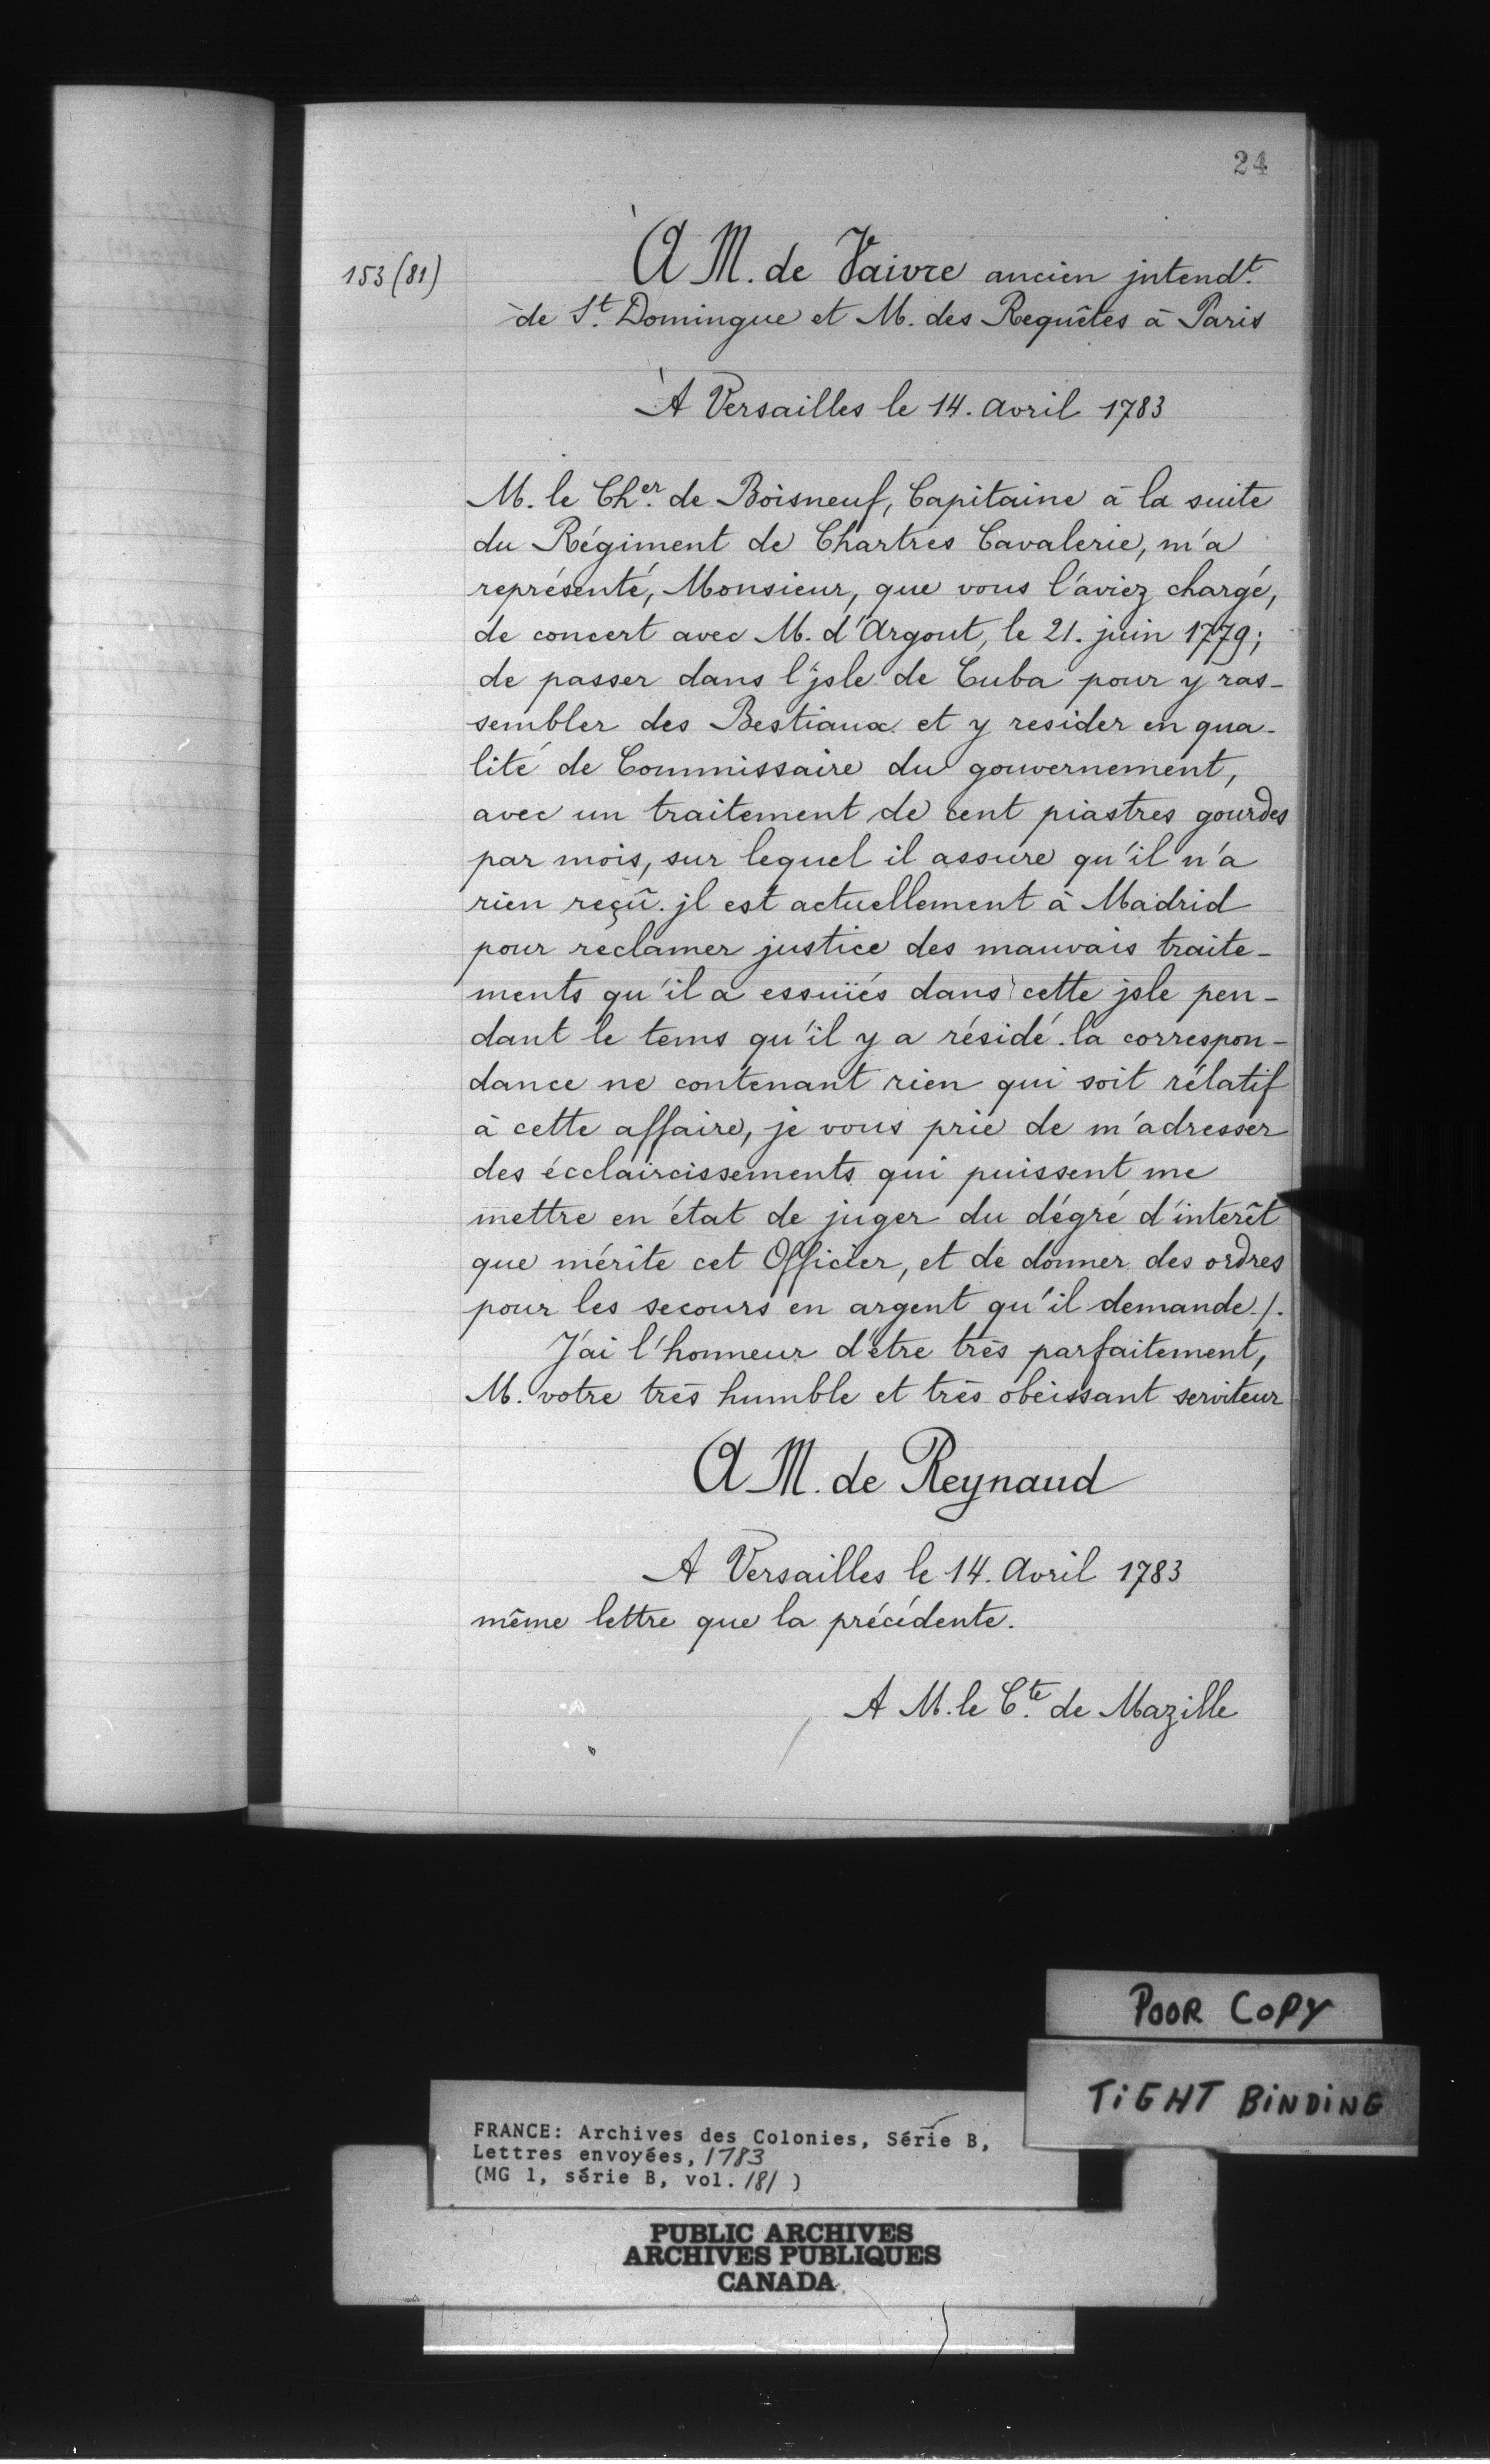 24
153 (81)
À M. de Vaivre ancien jntend.t
de S.t Domingue et M. des Requêtes à Paris
À Versailles le 14. avril 1783
M. le Ch.er de Boisneuf, Capitaine à la suite
du Régiment de Chartres Cavalerie, m'a
représenté, Monsieur, que vous l'aviez chargé,
de concert avec M. d'Argout, le 21. juin 1779;
de passer dans l'jsle de Cuba pour y ras-
sembler des Bestiaux et y resider en qua-
lité de Commissaire du gouvernement,
avec un traitement de cent piastres gourdes
par mois, sur lequel il assure qu'il n'a
rien reçû. jl est actuellement à Madrid
pour réclamer justice des mauvais traite-
ments qu'il a essuïés dans cette jsle pen-
dant le tems qu'il y a résidé. la correspon-
dance ne contenant rien qui soit rélatif
à cette affaire, je vous prie de m'adresser
des écclaircissements qui puissent me
mettre en état de juger du dégré d'interêt
que mérite cet Officier, et de donner des ordres
pour les secours en argent qu'il demande./.
J'ai l'honneur d'être très parfaitement,
M. votre très humble et très obéissant serviteur
A M. de Reynaud
A Versailles le 14. Avril 1783
même lettre que la précédente.
A M. le C.te de Mazille
POOR COPY
TIGHT BINDING
FRANCE: Archives des Colonies, Série B,
Lettres envoyées, 1783
(MG 1, série B, vol. 181 )
PUBLIC ARCHIVES
ARCHIVES PUBLIQUES
CANADA